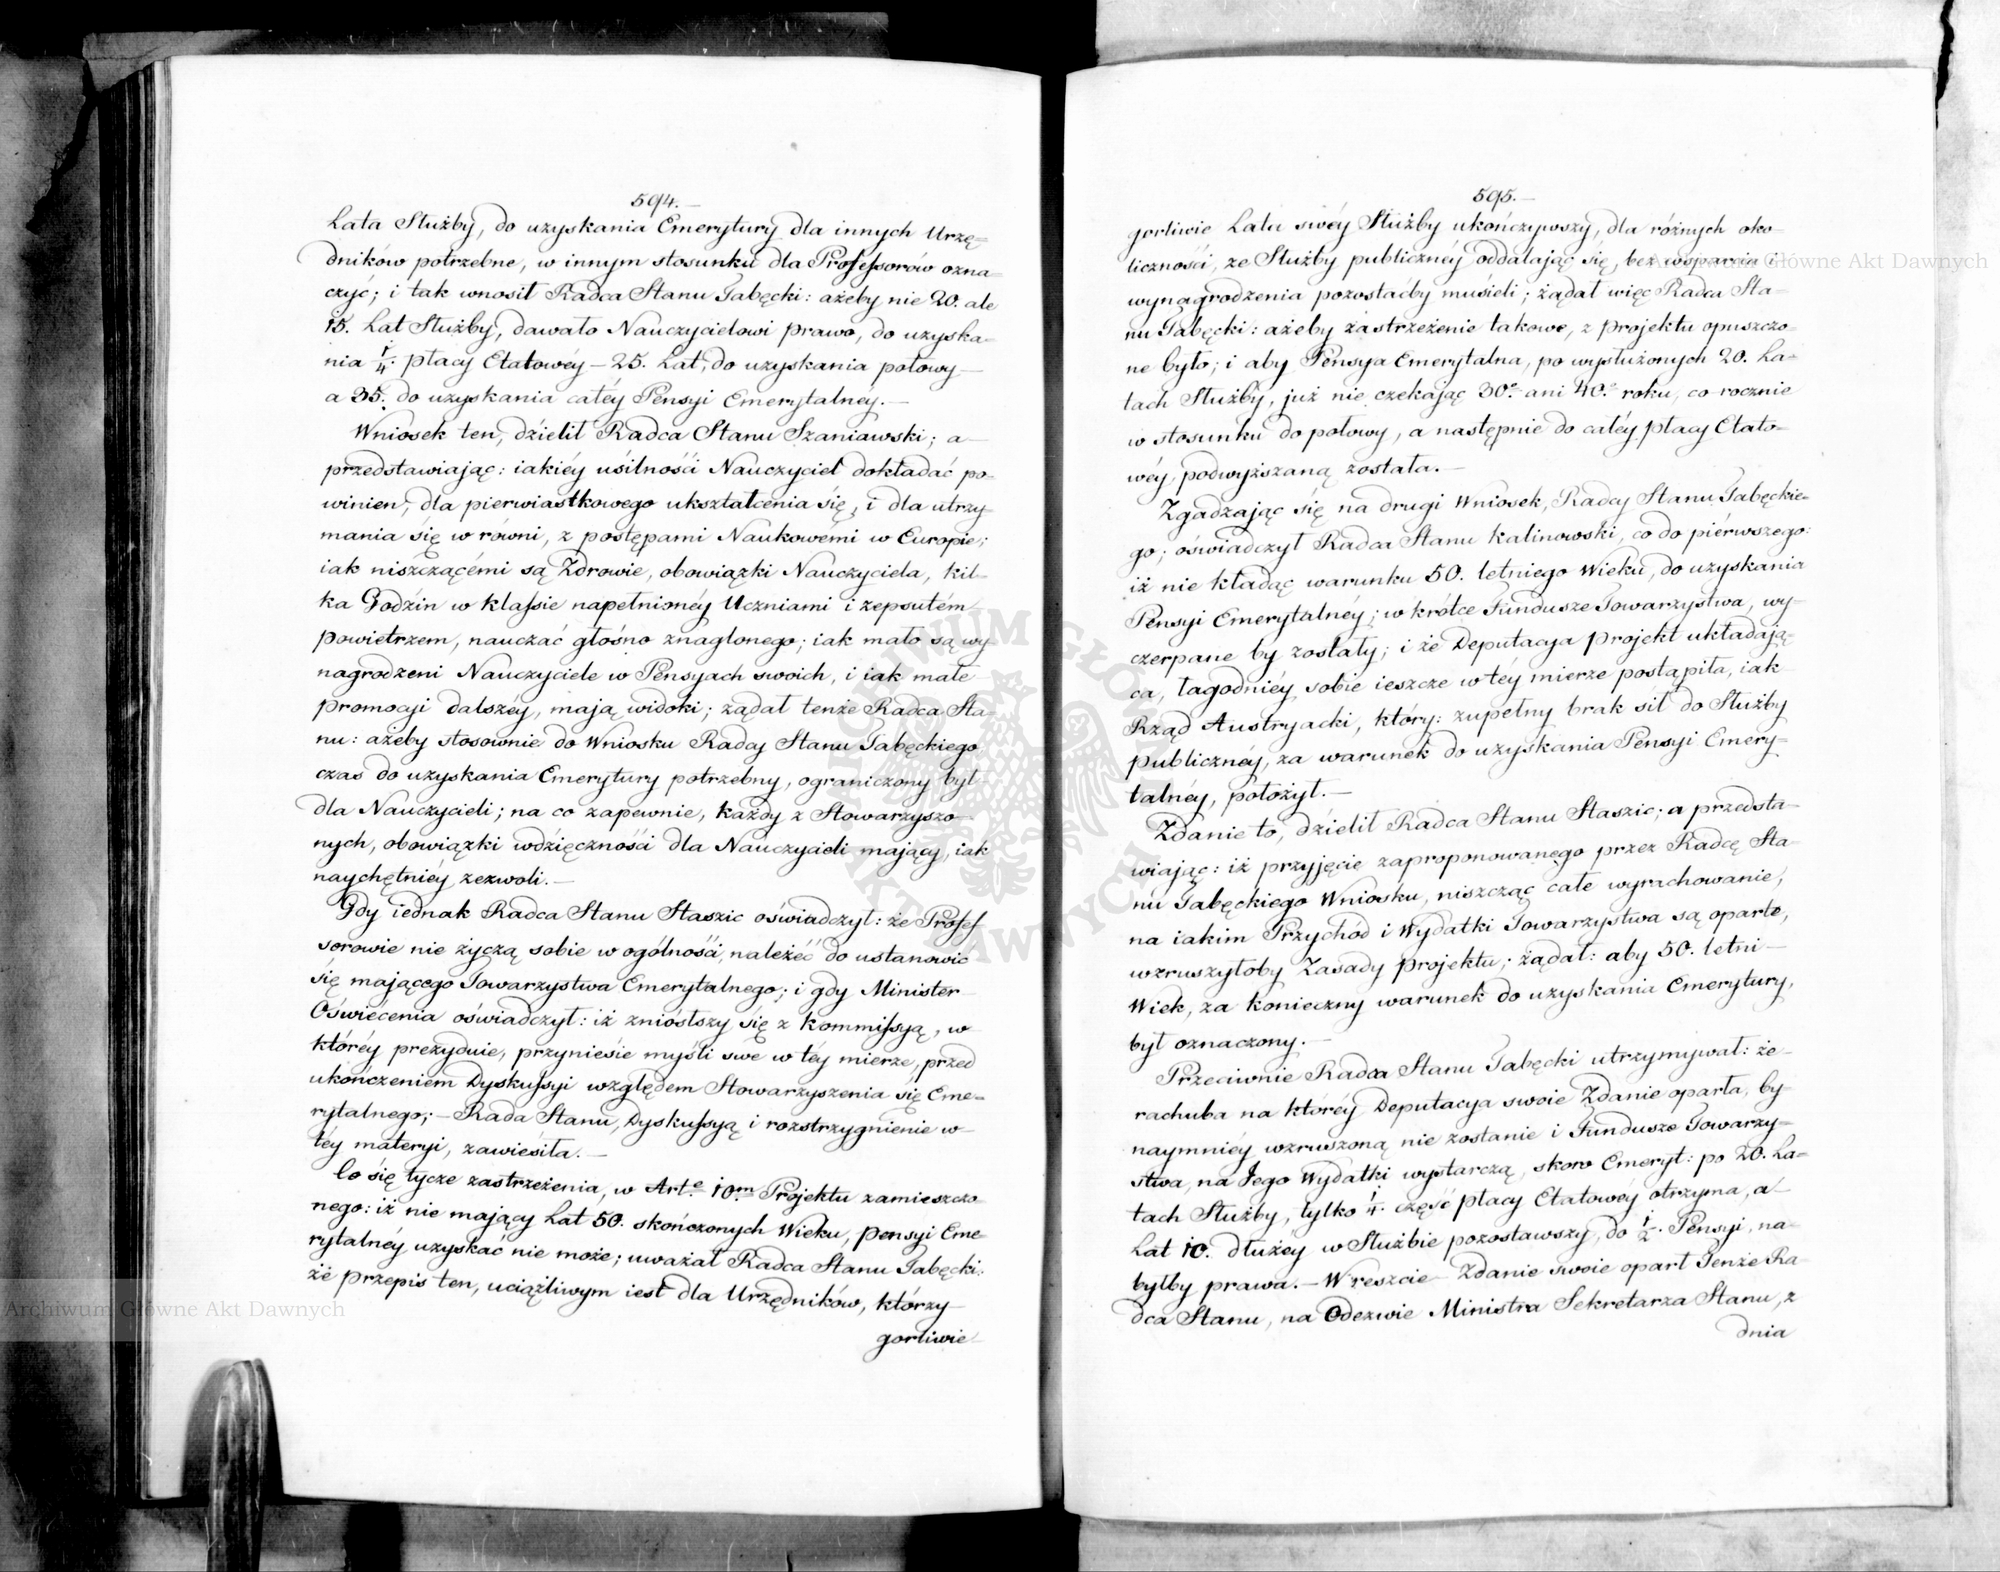 594.
Lata Służby, do uzyskania Emerytury dla innych Urzę=
dników potrzebne, w innym stosunku dla Professorów ozna=
czyć; i tak wnosił Radca Stanu Tabęcki: ażeby nie 20. ale
15. Lat Służby, dawało Nauczycielowi prawo, do uzyska=
nia 1/4. płacy Etatowéy — 25. Lat, do uzyskania połowy —
a 35. do uzyskania całéy Pensyi Emerytalney. —
Wniosek ten, dzielił Radca Stanu Szaniawski; a
przedstawiając: iakiéy usilności Nauczyciel dokładać po=
winien, dla pierwiastkowego ukształcenia się, i dla utrzy=
mania się w równi, z postępami Naukowemi w Europie;
iak niszczącémi są Zdrowie, obowiązki Nauczyciela, kil=
ka Godzin w klassie napełnionéy Uczniami i zepsutém
powietrzem, nauczać głośno znaglonego; iak mało są wy
nagrodzeni Nauczyciele w Pensyach swoich, i iak małe
promocyi dalszéy, mają widoki; żądał tenże Radca Sta=
nu: ażeby stosownie do Wniosku Radcy Stanu Tabęckiego
czas do uzyskania Emerytury potrzebny, ograniczony był
dla Nauczycieli; na co zapewnie, każdy z Stowarzyszo=
nych, obowiązki wdzięczności dla Nauczycieli mający, iak
naychętniéy zezwoli. —
Gdy iednak Radca Stanu Staszic oświadczył: że Profes
sorowie nie życzą sobie w ogólności, należéć do ustanowić
się mającego Towarzystwa Emerytalnego; i gdy Minister
Oświécenia oświadczył: iż zniósłszy się z Kommissyą, w
któréy prezyduie, przyniesie myśli swe w téy mierze, przed
ukończeniem Dyskussyi względem Stowarzyszenia się Eme=
rytalnego; — Rada Stanu, Dyskussyą i rozstrzygnienie w
téy materyi, zawiesiła. —
Co się tycze zastrzeżenia, w Art.e 10.m Projektu zamieszczo
nego: iż nie mający Lat 50. skończonych Wieku, pensyi Eme
rytalnéy uzyskać nie może; uważał Radca Stanu Tabęcki:
że przepis ten, uciążliwym iest dla Urzędników, którzy
gorliwie
595.
gorliwie Lata swéy Służby ukończywszy, dla różnych oko=
liczności, ze Służby publicznéy oddalając się, bez wsparcia i
wynagrodzenia pozostaćby musieli; żądał więc Radca Sta=
nu Tabęcki: ażeby zastrzeżenie takowe, z projektu opuszczo=
ne było; i aby Pensya Emerytalna, po wysłużonych 20. La=
tach Służby, już nie czekając 30.o ani 40.o roku, co rocznie
w stosunku do połowy, a następnie do całéy płacy Etato=
wéy, podwyższaną została. —
Zgadzając się na drugi Wniosek, Radcy Stanu Tabęckie=
go; oświadczył Radca Stanu Kalinowski, co do piérwszego:
iż nie kładąc warunku 50. letniego Wieku, do uzyskania
Pensyi Emerytalnéy; w krótce Fundusze Towarzystwa, wy=
czerpane by zostały; i że Deputacya projekt układają=
ca, łagodniéy sobie ieszcze w téy mierze postąpiła, iak
Rząd Austryacki, który: zupełny brak sił do Służby
publicznéy, za warunek do uzyskania Pensyi Emery=
talnéy, położył. —
Zdanie to, dzielił Radca Stanu Staszic; a przedsta=
wiając: iż przyjęcie zaproponowanego przez Radcę Sta=
nu Tabęckiego Wniosku, niszcząc całe wyrachowanie,
na iakim Przychód i Wydatki Towarzystwa są oparte,
wzruszyłoby Zasady projektu; żądał: aby 50. letni
Wiek, za konieczny warunek do uzyskania Emerytury,
był oznaczony. —
Przeciwnie Radca Stanu Tabęcki utrzymywał: że
rachuba na któréy Deputacya swoie Zdanie oparła, by
naymniéy wzruszoną nie zostanie i Fundusze Towarzy=
stwa, na Jego Wydatki wystarczą, skoro Emeryt: po 20. La=
tach Służby, tylko 1/4. część płacy Etatowéy otrzyma, a
Lat 10. dłużéy w Służbie pozostawszy, do 1/2. Pensyi, na=
byłby prawa. — Wreszcie Zdanie swoie oparł Tenże Ra=
dca Stanu, na Odezwie Ministra Sekretarza Stanu, z
dnia